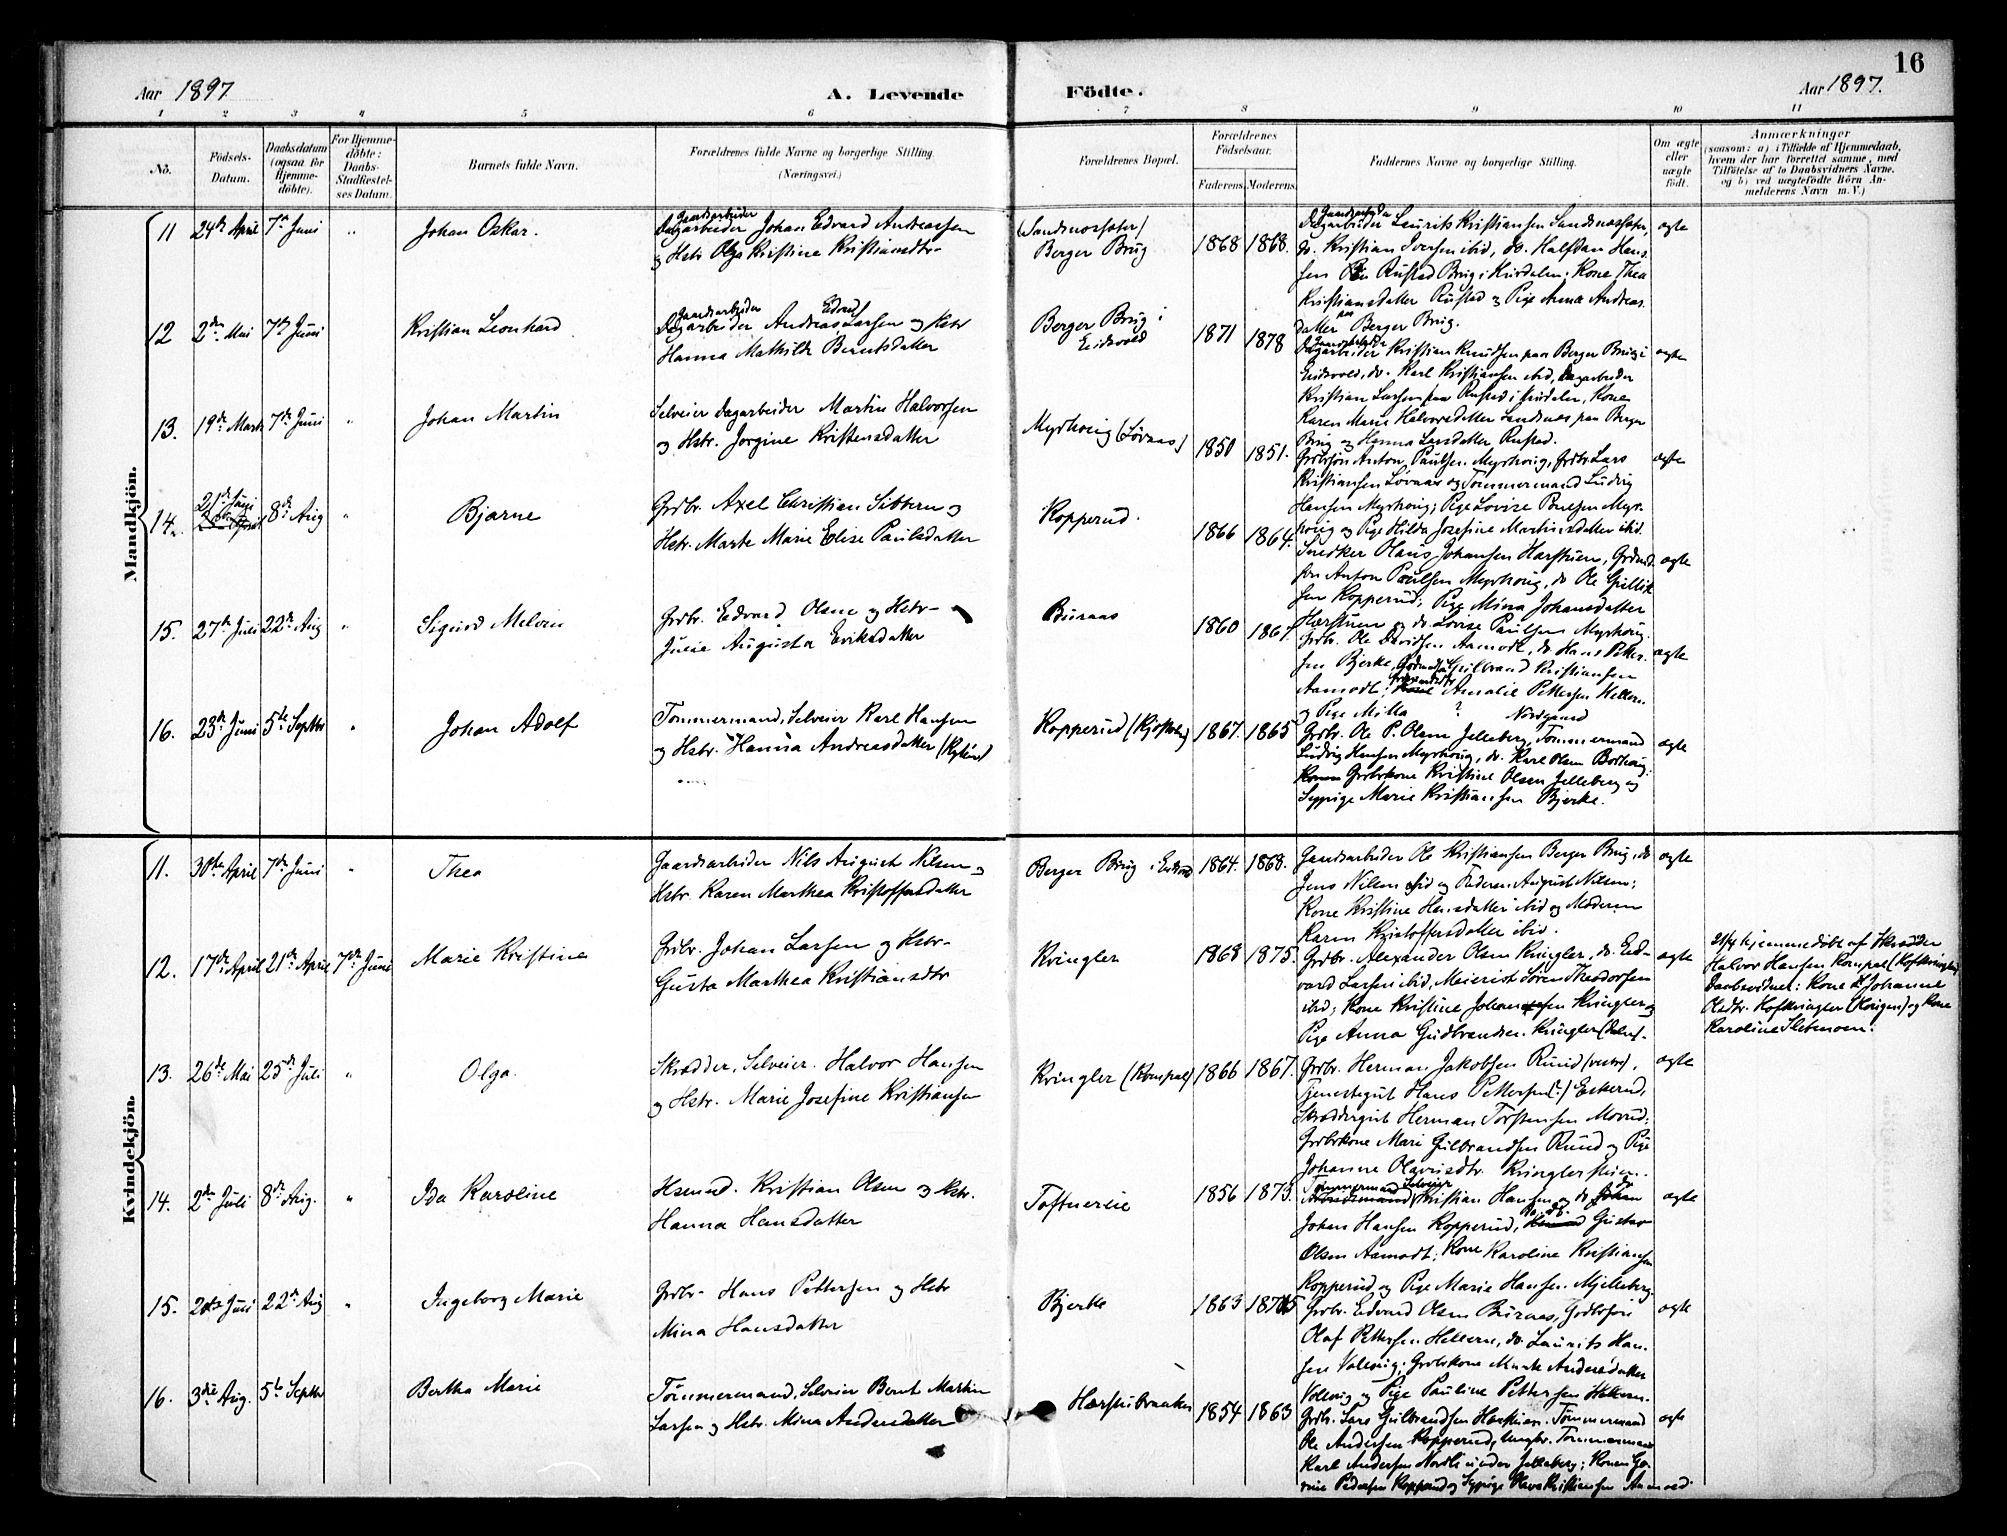 16
Aar 1897.
A. Levende
Födte.
Aar 1897.
1 2 3 4 5 6 7 8 9 10 11
No.
Födsels-
Datum.
Daabsdatum
(ogsaa for
Hjemme-
döbte).
For Hjemme-
döbte:
Daabs-
Stadfæstel-
ses Datum.
Barnets fulde Navn.
Forældrenes fulde Navne og borgerlige Stilling.
(Næringsvei.)
Forældrenes Bopæl.
Forældrenes
Födselsaar.
Faderens.
Moderens.
Faddernes Navne og borgerlige Stilling.
Om ægte
eller
uægte
födt.
Anmærkninger
(saasom: a) i Tilfælde af Hjemmedaab,
hvem der har forrettet samme, med
Tilföielse af to Daabsvidners Navne,
og b) ved uægtefödte Börn An-
melderens Navn m. V.)
Mandkjön.
11 24de April 7de Juni " Johan Oskar.
Gaardsarbeider
Dagarbeider Johan Edvard Andreassen
og Hstr. Olga Kristine Kristiansdtr-
Berger Brug
1868 1868.
Gaardsarbeider
Dagarbeider Laurits Kristiansen
do. Kristian Iversen ibid, do. Halfdan Han-
sen Rustad Brug i Hurdalen; Kone Thea
Kristiansdatter Rustad og Pige Anna Andreas-
datter paa Berger Brug.
ægte
12 2den Mai 7de Juni Kristian Leonhard
Gaardsarbeider
Dagarbeider Andreas Larsen og Hstr
Hanna Mathilde Berntsdatter
Berger Brug i
Eidsvold
1871 1878
Gaardsarbeider
Dagarbeider Kristian Knudsen paa Berger Brug i
Eidsvold, do. Karl Kristiansen ibid, Dagarbeider
Kristian Larsen paa Rustad i Hurdalen, Kone
Karen Marie Halvorsdatter Sandnes paa Berger
Brug og Hanna Larsdatter Rustad.
ægte
13. 19de Marts 7de Juni " Johan Martin
Selveier Dagarbeider Martin Halvorsen
og Hstr. Jorgine Kristensdatter
Myrhoug (Lövaas)
1850 1851.
Grdbrsön Anton Paulsen Myrhoug, Grdbr. Lars
Kristiansen Lövaas og Tömmermand Ludvig
Hansen Myrhoug; Pige Lovise Poulsen Myr-
houg og Pige Hilda Josefine Martinsdatter ibid.
ægte
14. 21de Juni 8de Aug " Bjarne
Grdbr. Axel Christian Sibbern og
Hstr. Marte Marie Elise Paulsdatter
Kopperud.
1866 1864.
Snedker Olaus Johansen Hærstuen, Grdmd.
sön Anton Paulsen Myrhoug, do Ole Gulbr-
sen Kopperud; Pige Mina Johansdatter
Hærstuen og do. Lovise Paulsen Myrhoug.
ægte
15. 27de Juli 22de Aug " Sigurd Melvin
Grdbr. Edvard Olsen og Hstr-
Julie Augusta Eriksdatter
Buraas
1860 1867.
Grdbr. Ole Davidsen Aamodt, do. Hans Petter-
sen Bjerke, Gulbrand Kristiansen
Aamodt; Amalie Pettersen Hellern
og Pige Milla ? Nordgaard
ægte
16. 23de Juni 5te Septbr " Johan Adolf
Tömmermand, Selveier Karl Hansen
og Hstr. Hanna Andreasdatter
Kopperud
1867. 1865
Grdbr. Ole P. Olsen Jelleberg, Tömmermand
Ludvig Hansen Myrhoug, do. Karl Olsen Borthoug;
Grdbrkone Kristine Olsen Jelleberg og
Sypige Marie Kristiansen Bjerke.
ægte
Kvindekjön.
11. 30te April 7de Juni " Thea
Gaardsarbeider Nils August Nilsen og
Hstr. Karen Marthea Kristoffersdatter
Berger Brug i Eidsvold
1864. 1868.
Gaardsarbeider Ole Kristiansen Berger Brug, do
Jens Nilsen ibid og Faderen August Nilsen;
Kone Kristine Hansdatter ibid og Moderen
Karen Kristoffersdatter ibid.
ægte
12. 17de April 21de April 7de Juni Marie Kristine
Grdbr. Johan Larsen og Hstr-
Gusta Marthea Kristiansdtr
Kringler
1868 1875.
Grdbr. Alexander Olsen Kringler, do. Ed-
vard Larsen ibid, Meierist Sören Theodorsen
ibid; Kone Kristine Johansen Kringler og
Pige Anna Gudbrandsen Kringler
ægte
21/4 hjemmedöbt af Skrædder
Halvor Hansen Rompal
Daabsvidner: Kone Johanne
Olsdtr. Hofkringler og Kone
Karoline Sletmoen.
13. 26de Mai 25de Juli " Olga.
Skrædder, Selveier. Halvor Hansen
og Hstr. Marie Josefine Kristiansen
Kringler (Rompal)
1866 1867.
Grdbr. Herman Jakobsen Ruud (vestre),
Tjenestegut Hans Pettersen (?) Eskerud,
Skræddergut Herman Torstensen Morud;
Grdbrkone Mari Gulbrandsen Ruud og Pige
Johanne Olavusdtr. Kringlerstuen.
ægte
14. 2den Juli 8de Aug. " Ida Karoline
Hsmd. Kristian Olsen og Hstr.
Hanna Hansdatter
Toftnereie
1856 1873.
Tömmermand Selveier
Kristian Hansen og do
Johan Hansen Kopperud, Gustav
Olsen Aamodt; Kone Karoline Kristiansen
Kopperud og Pige Marie Hansen Mjelleberg.
ægte
15. 20de Juni 22de Aug " Ingeborg Marie
Grdbr- Hans Pettersen og Hstr
Mina Hansdatter
Bjerke
1863 1875
Grdbr. Edvard Olsen Buraas, Grdbrsön
Olaf Pettersen Hellern, do. Laurits Han-
sen Voloug; Grdbrkone Marte Andersdatter
Voloug og Pige Pauline Pettersen Hellern.
ægte
16. 3die Aug. 5te Septbr Bertha Marie
Tömmermand, Selveier Bernt Martin
Larsen og Hstr. Mina Andersdatter
Hærstubraaten
1854 1863
Grdbr. Lars Gulbrandsen Hærstuen. Tömmermand
Ole Andersen Kopperud, Ungkr. Tömmermand
Karl Andersen Nordli under Jelleberg; Konen
Pedersen Kopperud og Sypige Olava Kristiansen Aamod.
ægte